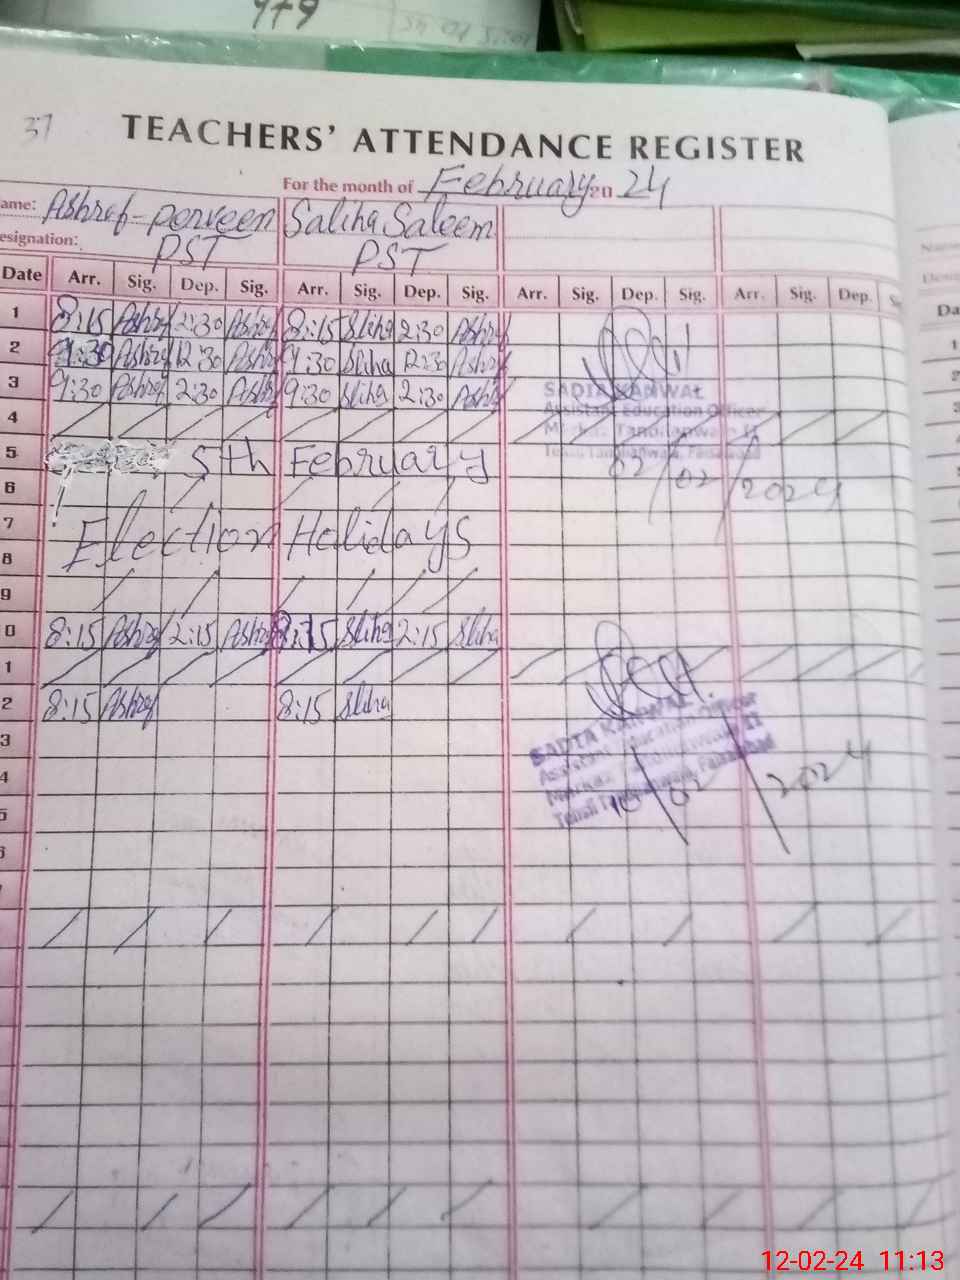 37
TEACHERS' ATTENDANCE REGISTER
For the month of February 20 24
ame: Ashref-perveen Saliha Saleem
esignation: PST PST
Date Arr. Sig. Dep. Sig. Arr. Sig. Dep. Sig. Arr. Sig. Dep. Sig. Arr. Sig. Dep.
1 8:15 Ashref 2:30 Ashref 8:15 Sliha 2:30 Ashref
2 9:30 Ashref 12:30 Ashref 9:30 Sliha 12:30 Ashref
3 9:30 Ashref 2:30 Ashref 9:30 Sliha 2:30 Ashref
SADIA KANWAL
Assistant Education Officer
4
Markaz Tandlianwala II
5 5th February
Tehsil Tandlianwala, Faisalabad
02/02/2024
6
7 Election Holidays
8
9
0 8:15 Ashref 2:15 Ashref 8:15 Sliha 2:15 Sliha
1
2 8:15 Ashref 8:15 Sliha
3
SADIA KANWAL
Assistant Education Officer
4
Markaz Tandlianwala II
Tehsil Tandlianwala, Faisalabad
10/02/2024
5
6
12-02-24 11:13